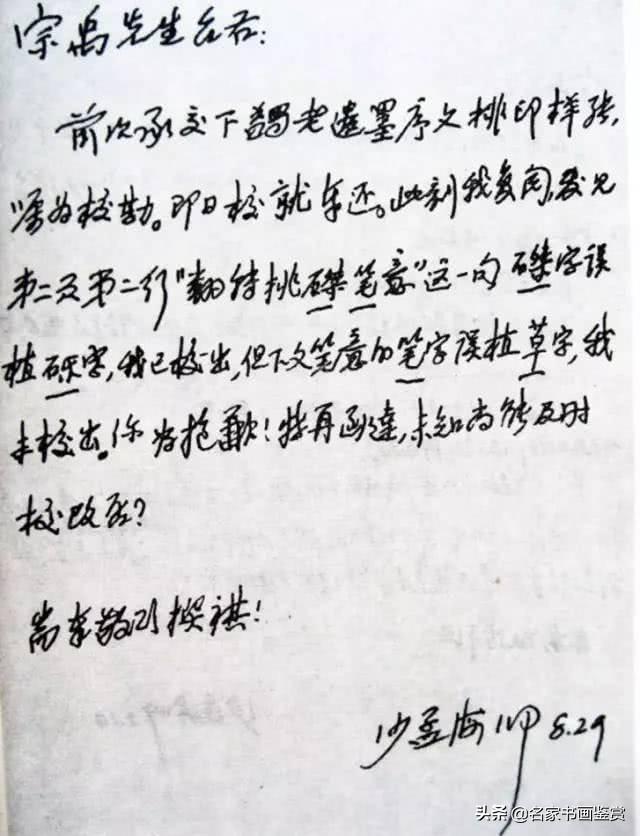 宗禹先生台右:
前次承交下蠲老遗墨序文排印样张,
嘱为校勘。即日校就奉还。此刻我复阅,发见
第二页第二行"翻转挑磔笔意"这一句磔字误
植砾字,我已校出,但下文笔意的笔字误植草字,我
未校出。深为抱歉!特再函达,未知尚能及时
校改否?
耑奉敬颂撰祺!
沙孟海 8.29
头条@名家书画鉴赏